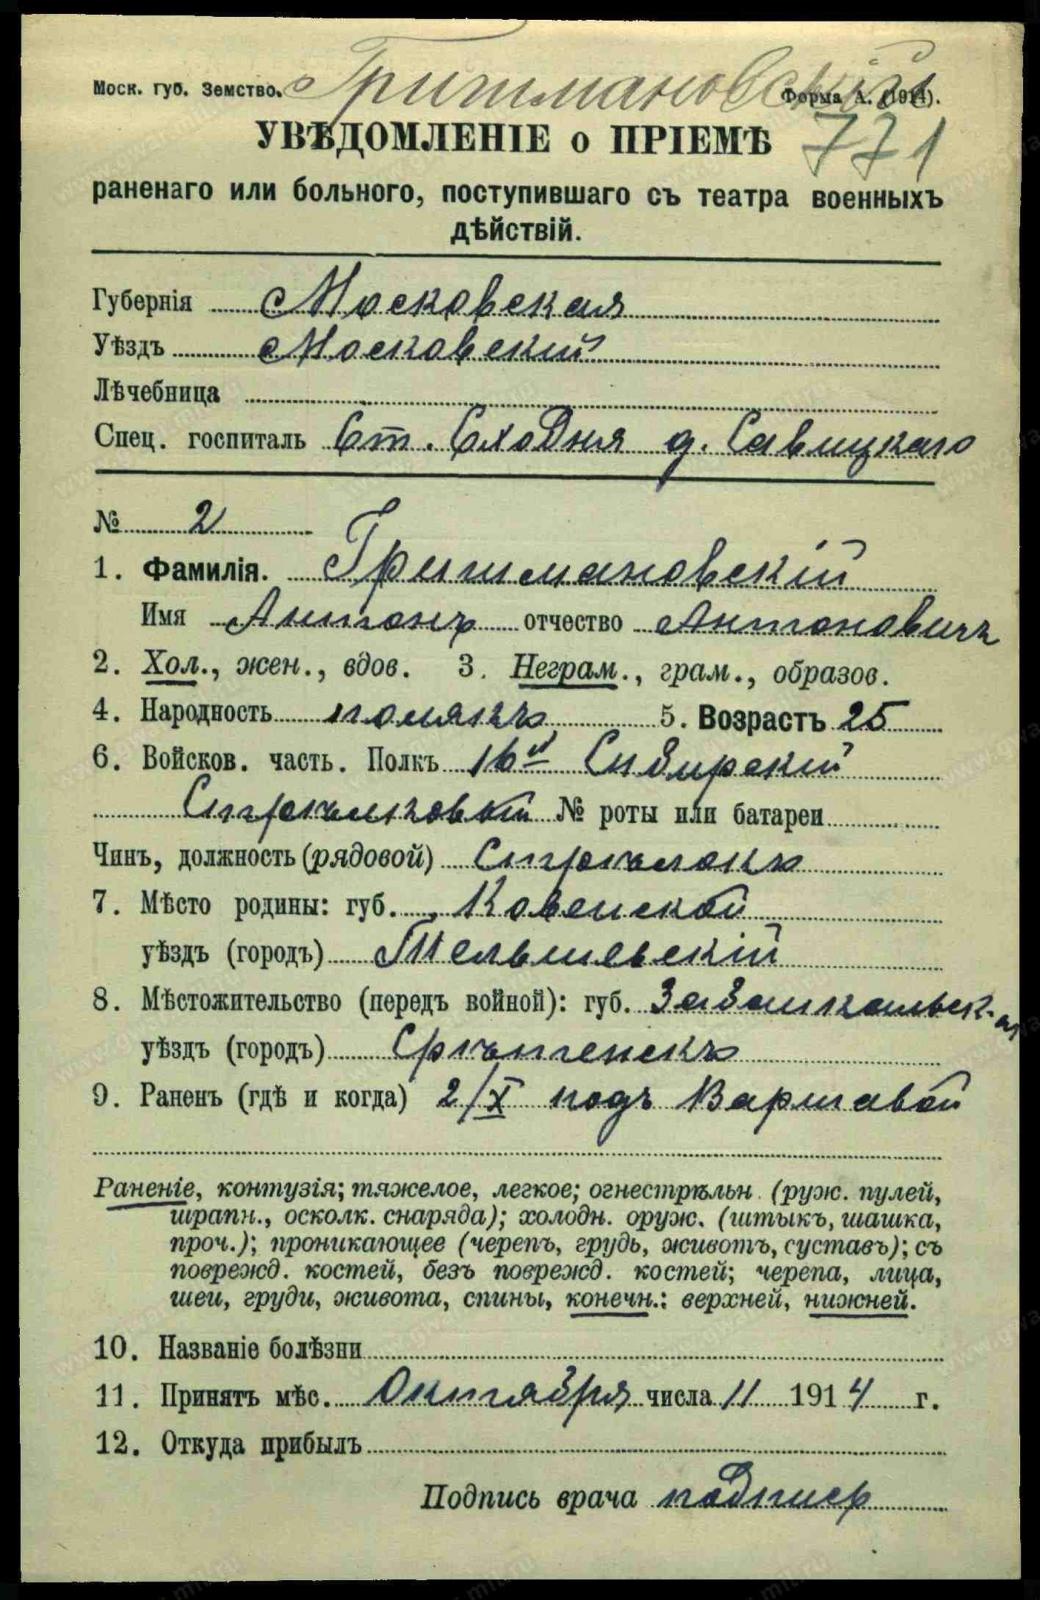 Моск. губ. Земство. Гришмановскій Форма А. (1914).
УВѢДОМЛЕНІЕ о ПРІЕМѢ 771
раненаго или больного, поступившаго съ театра военныхъ
дѣйствій.
Губернія Московская
Уѣздъ Московскій
Лѣчебница
Спец. госпиталь Ст. Сходня д. Савицкаго
№ 2
1. Фамилія. Гришмановскій
Имя Антонъ отчество Антоновичъ
2. Хол., жен., вдов. 3. Неграм., грам., образов.
4. Народность полякъ 5. Возрастъ 25
6. Войсков. часть. Полкъ 16й Сибирскій
Стрѣлковый № роты или батареи
Чинъ, должность (рядовой) Стрѣлокъ
7. Мѣсто родины: губ. Ковенской
уѣздъ (городъ) Тельшевскій
8. Мѣстожительство (передъ войной): губ.
уѣздъ (городъ) Срѣтенскъ
9. Раненъ (гдѣ и когда) 2/X подъ Варшавой
Раненіе, контузія; тяжелое, легкое; огнестрѣльн. (руж. пулей,
шрапн., осколк. снаряда); холодн. оруж. (штыкъ, шашка,
проч.); проникающее (черепъ, грудь, животъ, суставъ); съ
поврежд. костей, безъ поврежд. костей; черепа, лица,
шеи, груди, живота, спины, конечн.: верхней, нижней.
10. Названіе болѣзни
11. Принятъ мѣс. Октября числа 11 1914 г.
12. Откуда прибылъ
Подпись врача подпись